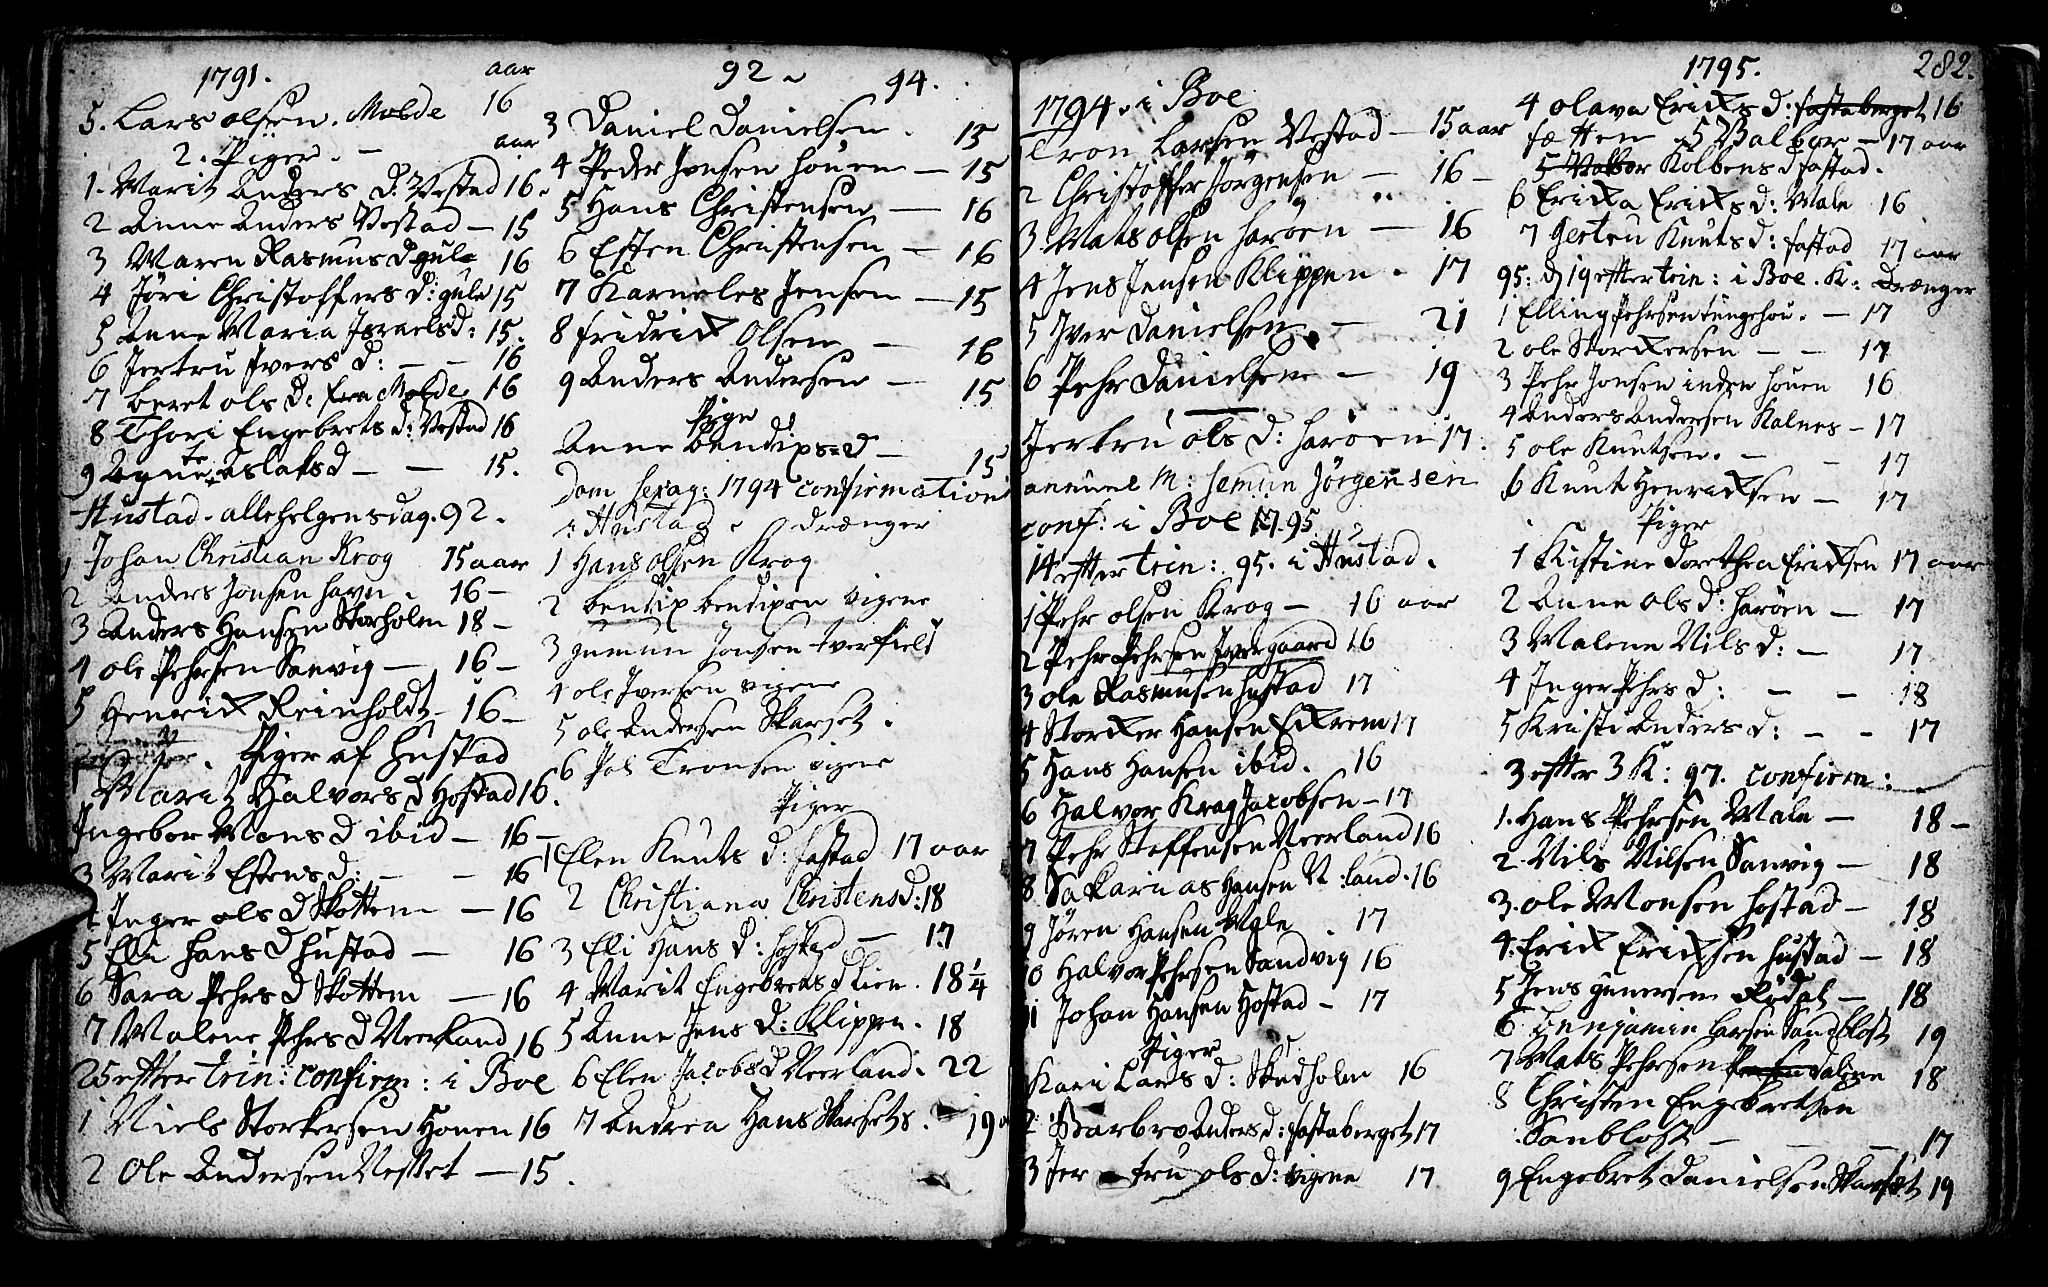 1791. aar
5. Lars olsen. Molde 16
2. Piger. — aar
1. Marit Anders D. Vestad 16.
2 Anne Anders Vestad — 15
3 Maren Rasmus D gule 16
4 Jöri Christoffers D: gule 15
5 Anne Maria Israels d: 15.
6 Jertru Ivers D: — — 16
7 beret ols D: fra Molde 16
8 Thori Engebrets d: Vestad 16
9 Agnete Aslaks d — — 15.
Hustad. allehelgensdag. 92.
1 Johan Christian Krog 15 aar
2 Anders Jonsen havn. 16 —
3 Anders Hansen Storholm 18 —
4 ole Pehrsen Sanvig — 16 —
5 Henrick Reinholdt — 16 —
Piger af Hustad
Marit Halvors d Hostad 16.
Ingebor Mons d ibid — 16 —
3 Marit Estens d: — — 16
4 Inger ols d Skottem — 16
5 Elli hans d hustad — 16
6 Sara Pehrs d Skottem — 16
7 Malene Pehrs d Neerland 16
25 efter trin: confirm: i Boe
1 Niels Storkersen Houen 16
2 Ole Andersen Nesset — 15.
92 ~ 94.
3 Daniel Danielsen. 15
4 Peder Jonsen houen — 15
5 Hans Christensen — 16
6 Esten Christensen — 16
7 Karneles Jensen — 15
8 fridrick Olsen — 16
9 Anders Andersen — 15
Pige
Anne bendixs=d — 15
Dom sexag: 1794 confirmation
i Hustad. drænger
1 Hans olsen Krog
2 bendix bendixen vigene
3 gumun Jonsen tverfield
4 ole Iversen vigene
5 ole Andersen Skarset.
6 Pol Tronsen vigene
Piger
1 Elen Knuts d: fastad 17 aar
2 Christiana Christens d: 18
3 Eli Hans d: hostad — 17
4 Marit Engebrets d Lien. 18 1/4
5 Anne Jens d: Klippen. 18
6 Elen Jacobs d Neerland. 22
7 Andrea Hans Skarsets. 19
1794. i Boe
Tron Larsen Vestad — 15 aar
2 Christoffer Jörgensen — 16 —
3 Mats olsen harøen — 16
4 Jens Jensen Klippen. 17
5 Iver danielsen — 21
6 Pehr Danielsen — 19
Jertru ols d: harøen 17.
anuuel M: semun Jörgensen
conf: i Boe 1795
14 efter trin: 95. i Hustad.
1 Pehr olsen Krog — 16 aar
2 Pehr Pehrsen Ivergaard 16
3 ole Rasmusen hustad 17
4 Storcker Hansen Eckrem 17
5 Hans Hansen ibid. 16
6 Halvor Krag Jacobsen — 17
7 Pehr Steffensen Neerland 16
8 Sakarias Hansen N: land. 16
9 Jören Hansen Male. 17
10 Halvor Pehrsen Sandvig 16
11 Johan Hansen Hostad — 17
Piger
Kari Lars d: Skudholm 16
2 Barbro Anders d: fastaberget 17
3 Jertru ols d: vigene 17
1795. 282.
4 olava Ericks d: fastaberget 16
sætten 5 Valbor — 17 aar
5 Valbor Kolbens d fastad.
6 Ericka Ericks d: Male 16
7 gertru Knuts d: fastad 17 aar
95: d 19 efter trin: i Boe. K: Drænger
1 Elling Pehrsen tungehou. — 17
2 ole Storckersen — — 17
3 Pehr Jonsen inden houen 16
4 Anders Andersen Kalnes — 17
5 ole Knutsen. — — 17
6 Knut Henricksen — 17
Piger
1 Kistine Dorethea Ericksen 17 aar
2 Anne ols d: harøen — 17
3 Malene Nils d: — 17
4 Inger Pehrs d: — — 18
5 Kristi Anders d: — — 17
3 efter 3 K: 97. confirm:
1. Hans Pehrsen Male — 18 —
2. Nils Nilsen Sanvig — 18
3. ole Monsen hostad — 18
4. Erick Ericksen hustad — 18
5 Jens gunersen Rødal — 18
6 Benjamin Larsen Sandblost 19
7 Mats Pehrsen dalene 18
8 Christen Engebretsen
Sanblost — — — 17
9 Engebret Danielsen Skarset 19